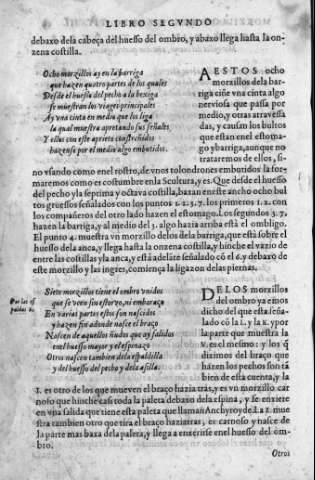 LIBRO SEGVNDO
debaxo dela cabeça del huesso del ombro, y abaxo llega hasta la on-
zena costilla.
Ocho morzillos ay en la barriga
que hazen quatro partes de los quales
Desde el huesso del pecho a la bexiga
se muestran los viages principales
Ay vna cinta en medio que los liga
la qual muestra apretando sus señales
Y ellos con este aprieto constreñidos
hazense por el medio algo embutidos.
A ESTOS ocho
morzillos dela bar-
riga ciñe vna cinta algo
nerviosa que passa por
medio, y otras atravessa
das, y causan los bultos
que estan enel estoma-
go y barriga, aunque no
trataremos de ellos, si
no vsando como enel rostro, de vnos tolondrones embutidos la for
maremos como es costumbre en la Scultura, y es. Que desde el huesso
del pecho y la septima y octava costilla, baxan en este ancho ocho bul
tos gruessos señalados con los puntos 1. 2. 3. 7. los primeros 1. 2. con
los compañeros del otro lado hazen el estomago. Los segundos 3. 7.
hazen la barriga, y al medio del 3. algo hazia arriba està el ombligo.
El punto 4. muestra vn morzillo delos dela barriga, que està sobre el
huesso dela anca, y llega hasta la onzena costilla, y hinche el vazio de
entre las costillas y la anca, y està adelãte señalado cõ el 6. y debaxo de
este morzillo y las ingres, comiença la ligazon delas piernas.
Siete morzillos tiene el ombro vnidos
que se veen sin estorvo, ni embaraço
En varias partes estos son nascidos
y hazen fin adonde nasce el braço
Nascen de aquellos ñudos que ay salidos
enel huesso mayor y el espinazo
Otros nascen tambien dela espaldilla
y del huesso del pecho y dela asilla.
Por las es
paldas 2.
DE LOS morzillos
del ombro ya emos
dicho del que esta seña-
lado cõ la I. y la K. y por
la parte que muestra la
V. es el mesmo: y los q̃
diximos del braço que
hazen los pechos son tã
bien de esta cuenta, y la
I. es otro de los que mueven el braço hazia tras, y es vn morzillo car
noso que hinche casi toda la paleta debaxo dela espina, y se enxiere
en vna salida que tiene esta paleta que llaman Anchyroyde. La 2. mue
stra tambien otro que tira el braço hazia tras, es carnoso y nasce de
la parte mas baxa dela paleta, y llega a enxerirse enel huesso del om-
bro.
Otros